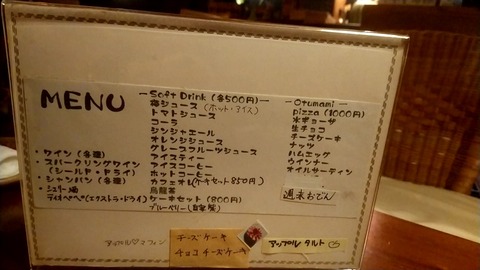 MENU
・ワイン(各種)
・スパークリングワイン
(シールド・ドライ)
・シャンパン(各種)
・シェリー酒
ティオペペ(エクストラ・ドライ)
ーSoft Drink (各500円)ー
梅ジュース(ホット・アイス)
トマトジュース
コーラ
ジンジャエール
オレンジジュース
グレープフルーツジュース
アイスティー
アイスコーヒー
ホットコーヒー
カフェオレ(ケーキセット850円)
烏龍茶
ケーキセット(800円)
ブルーベリー(自家製)
ーOtumamiー
pizza (1000円)
水ギョーザ
生チョコ
チーズケーキ
ナッツ
ハムエッグ
ウインナー
オイルサーディン
週末おでん
アップル♡マフィン
チーズケーキ
チョコチーズケーキ
アップルタルト